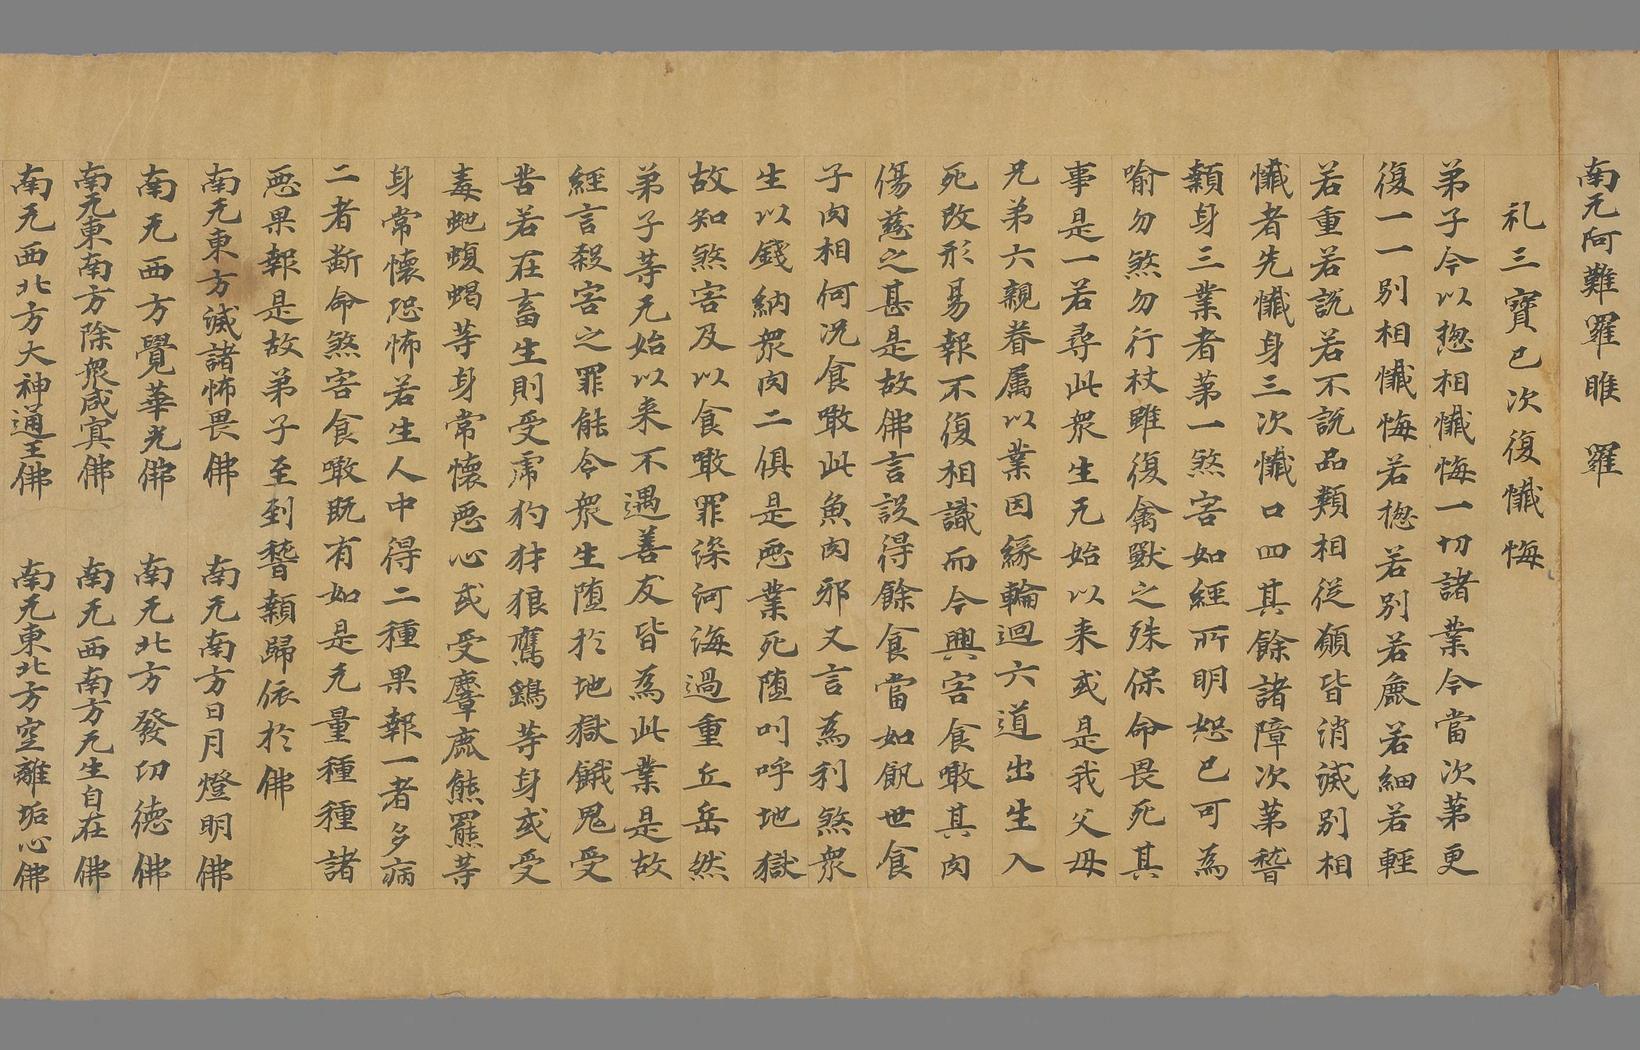 南无阿難羅睢 羅
礼三寶已次復懺悔
弟子今以揔相懺悔一切諸業今當次苐更
復一一別相懺悔若揔若別若麁若細若輕
若重若說若不說品類相從願皆消滅別相
懺者先懺身三次懺口四其餘諸障次苐嵆
顙身三業者苐一煞害如經所明恕已可為
喻勿煞勿行杖雖復禽獸之殊保命畏死其
事是一若尋此衆生无始以来或是我父母
兄弟六親眷属以業因緣輪迴六道出生入
死改形易報不復相識而今興害食噉其肉
傷慈之甚是故佛言設得餘食當如飢世食
子肉相何況食噉此魚肉邪又言為利煞衆
生以錢納衆肉二俱是惡業死墮叫呼地獄
故知煞害及以食噉罪深河海過重丘岳然
弟子等无始以来不遇善友皆為此業是故
經言殺害之罪能令衆生墮於地獄餓鬼受
苦若在畜生則受虎豹犲狼鷹鷂等身或受
毒虵蝮蝎等身常懷惡心或受麞鹿熊羆等
身常懷恐怖若生人中得二種果報一者多病
二者斷命煞害食噉既有如是无量種種諸
惡果報是故弟子至到嵆顙歸依於佛
南无東方滅諸怖畏佛 南无南方日月燈明佛
南无西方覺華光佛 南无北方發功德佛
南无東南方除衆咸冥佛 南无西南方无生自在佛
南无西北方大神通王佛 南无東北方空離垢心佛